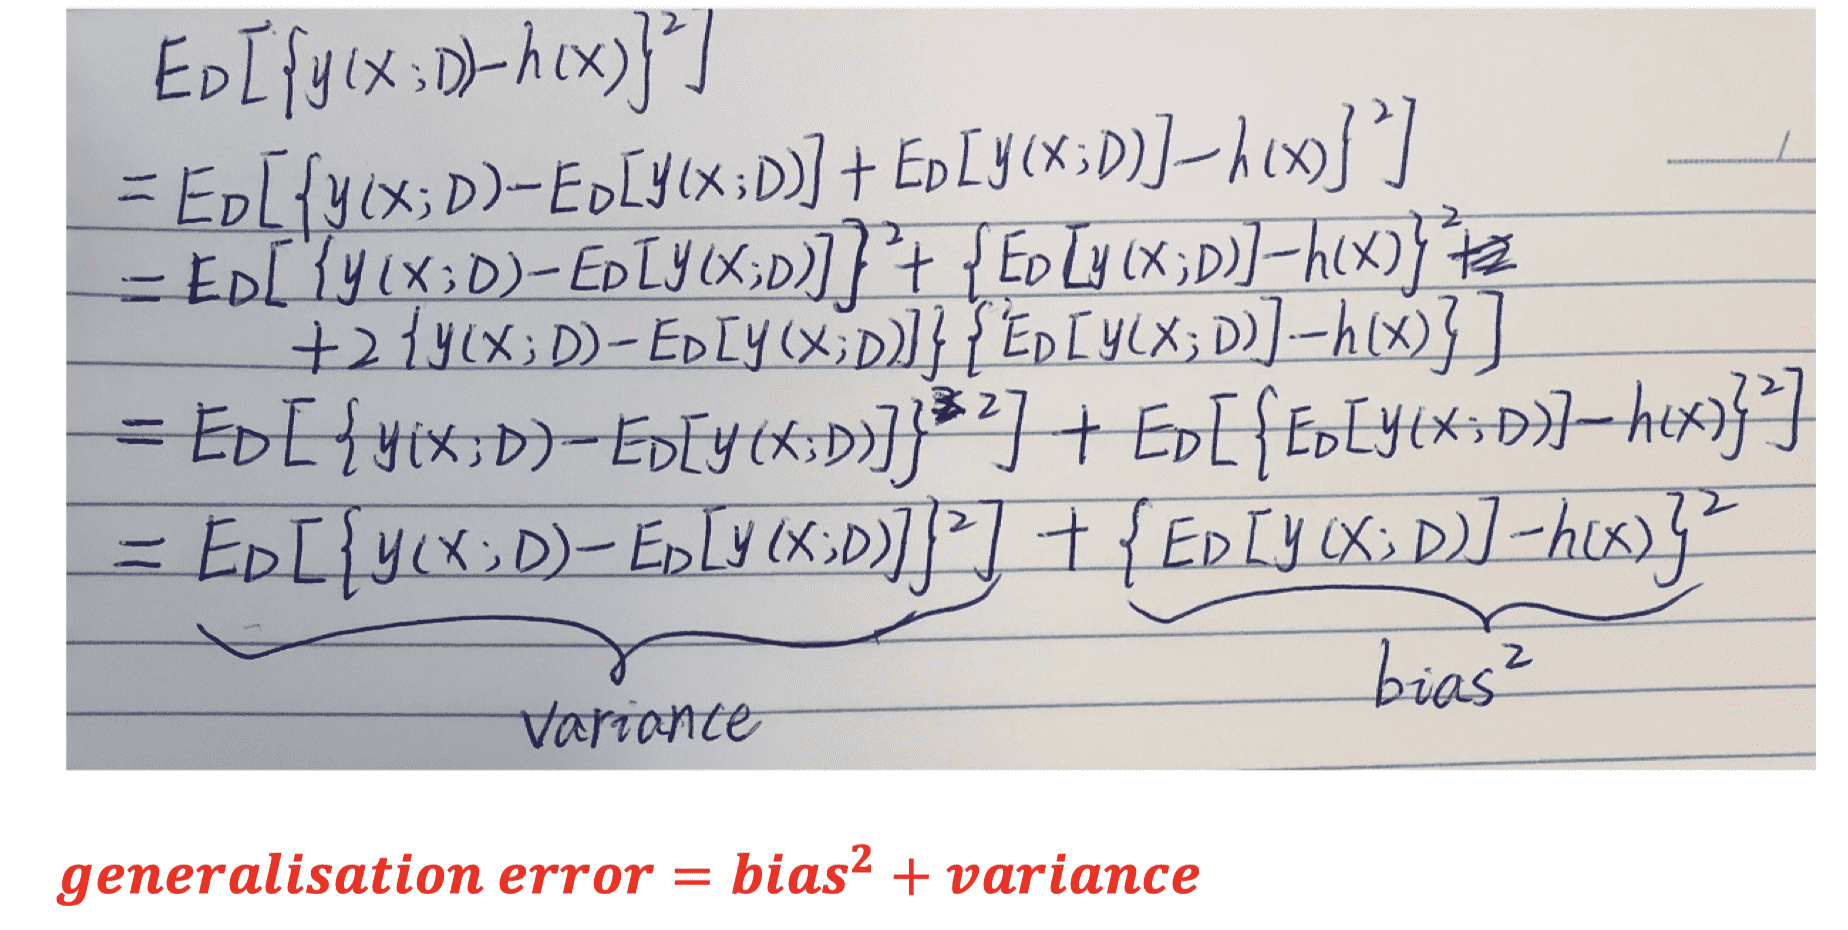 E_D[{y(x;D)-h(x)}²]
= E_D[{y(x;D)-E_D[y(x;D)]+E_D[y(x;D)]-h(x)}²]
= E_D[{y(x;D)-E_D[y(x;D)]}²+{E_D[y(x;D)]-h(x)}²
+2{y(x;D)-E_D[y(x;D)]}{E_D[y(x;D)]-h(x)}]
= E_D[{y(x;D)-E_D[y(x;D)]}²]+E_D[{E_D[y(x;D)]-h(x)}²]
= E_D[{y(x;D)-E_D[y(x;D)]}²]+{E_D[y(x;D)]-h(x)}²
variance bias²
generalisation error = bias² + variance